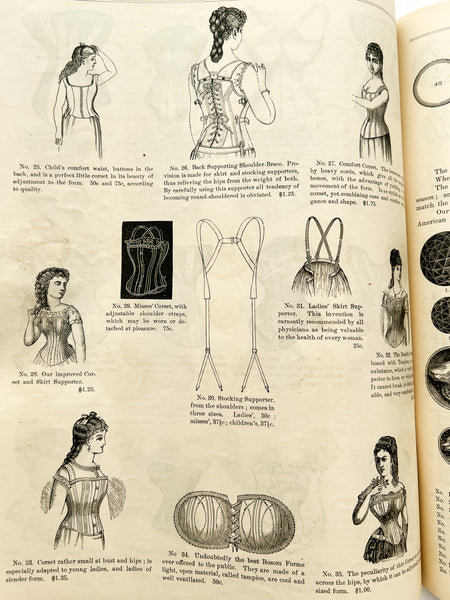 No. 25. Child's comfort waist, buttons in the
back, and is a perfect little corset in its beauty of
adjustment to the form. 50c and 75c, according
to quality.
No. 26. Back Supporting Shoulder-Brace. Pro-
vision is made for skirt and stocking supporters,
thus relieving the hips from the weight of both.
By carefully using this supporter all tendency of
becoming round-shouldered is obviated. $1.25.
No. 27. Comfort Corset. The
by heavy cords, which give all
bones, with the advantage of
movement of the form. Is
corset, yet combining ease and
gance and shape. $1.75.
No. 28. Our improved Cor-
set and Skirt Supporter.
$1.25.
No. 29. Misses' Corset, with
adjustable shoulder-straps,
which may be worn or de-
tached at pleasure. 75c.
No. 30. Stocking Supporter,
from the shoulders; comes in
three sizes. Ladies', 50c;
misses', 37½c; children's, 37½c.
No. 31. Ladies' Skirt Sup-
porter. This invention is
earnestly recommended by all
physicians as being valuable
to the health of every woman.
25c.
No. 32. The
boned with
substance, which is
perior to horn or
It cannot break, is
able, and very
No. 33. Corset rather small at bust and hips; is
especially adapted to young ladies, and ladies of
slender form. $1.25.
No. 34. Undoubtedly the best Bosom Forms
ever offered to the public. They are made of a
light, open material, called tampico, are cool and
well ventilated. 50c.
No. 35. The peculiarity of this Corset is
across the hips, by which it can be
sized form. $1.00.
The
Whe
The
match the
Our
American
No.
No.
No.
No.
No.
No.
No.
No.
No.